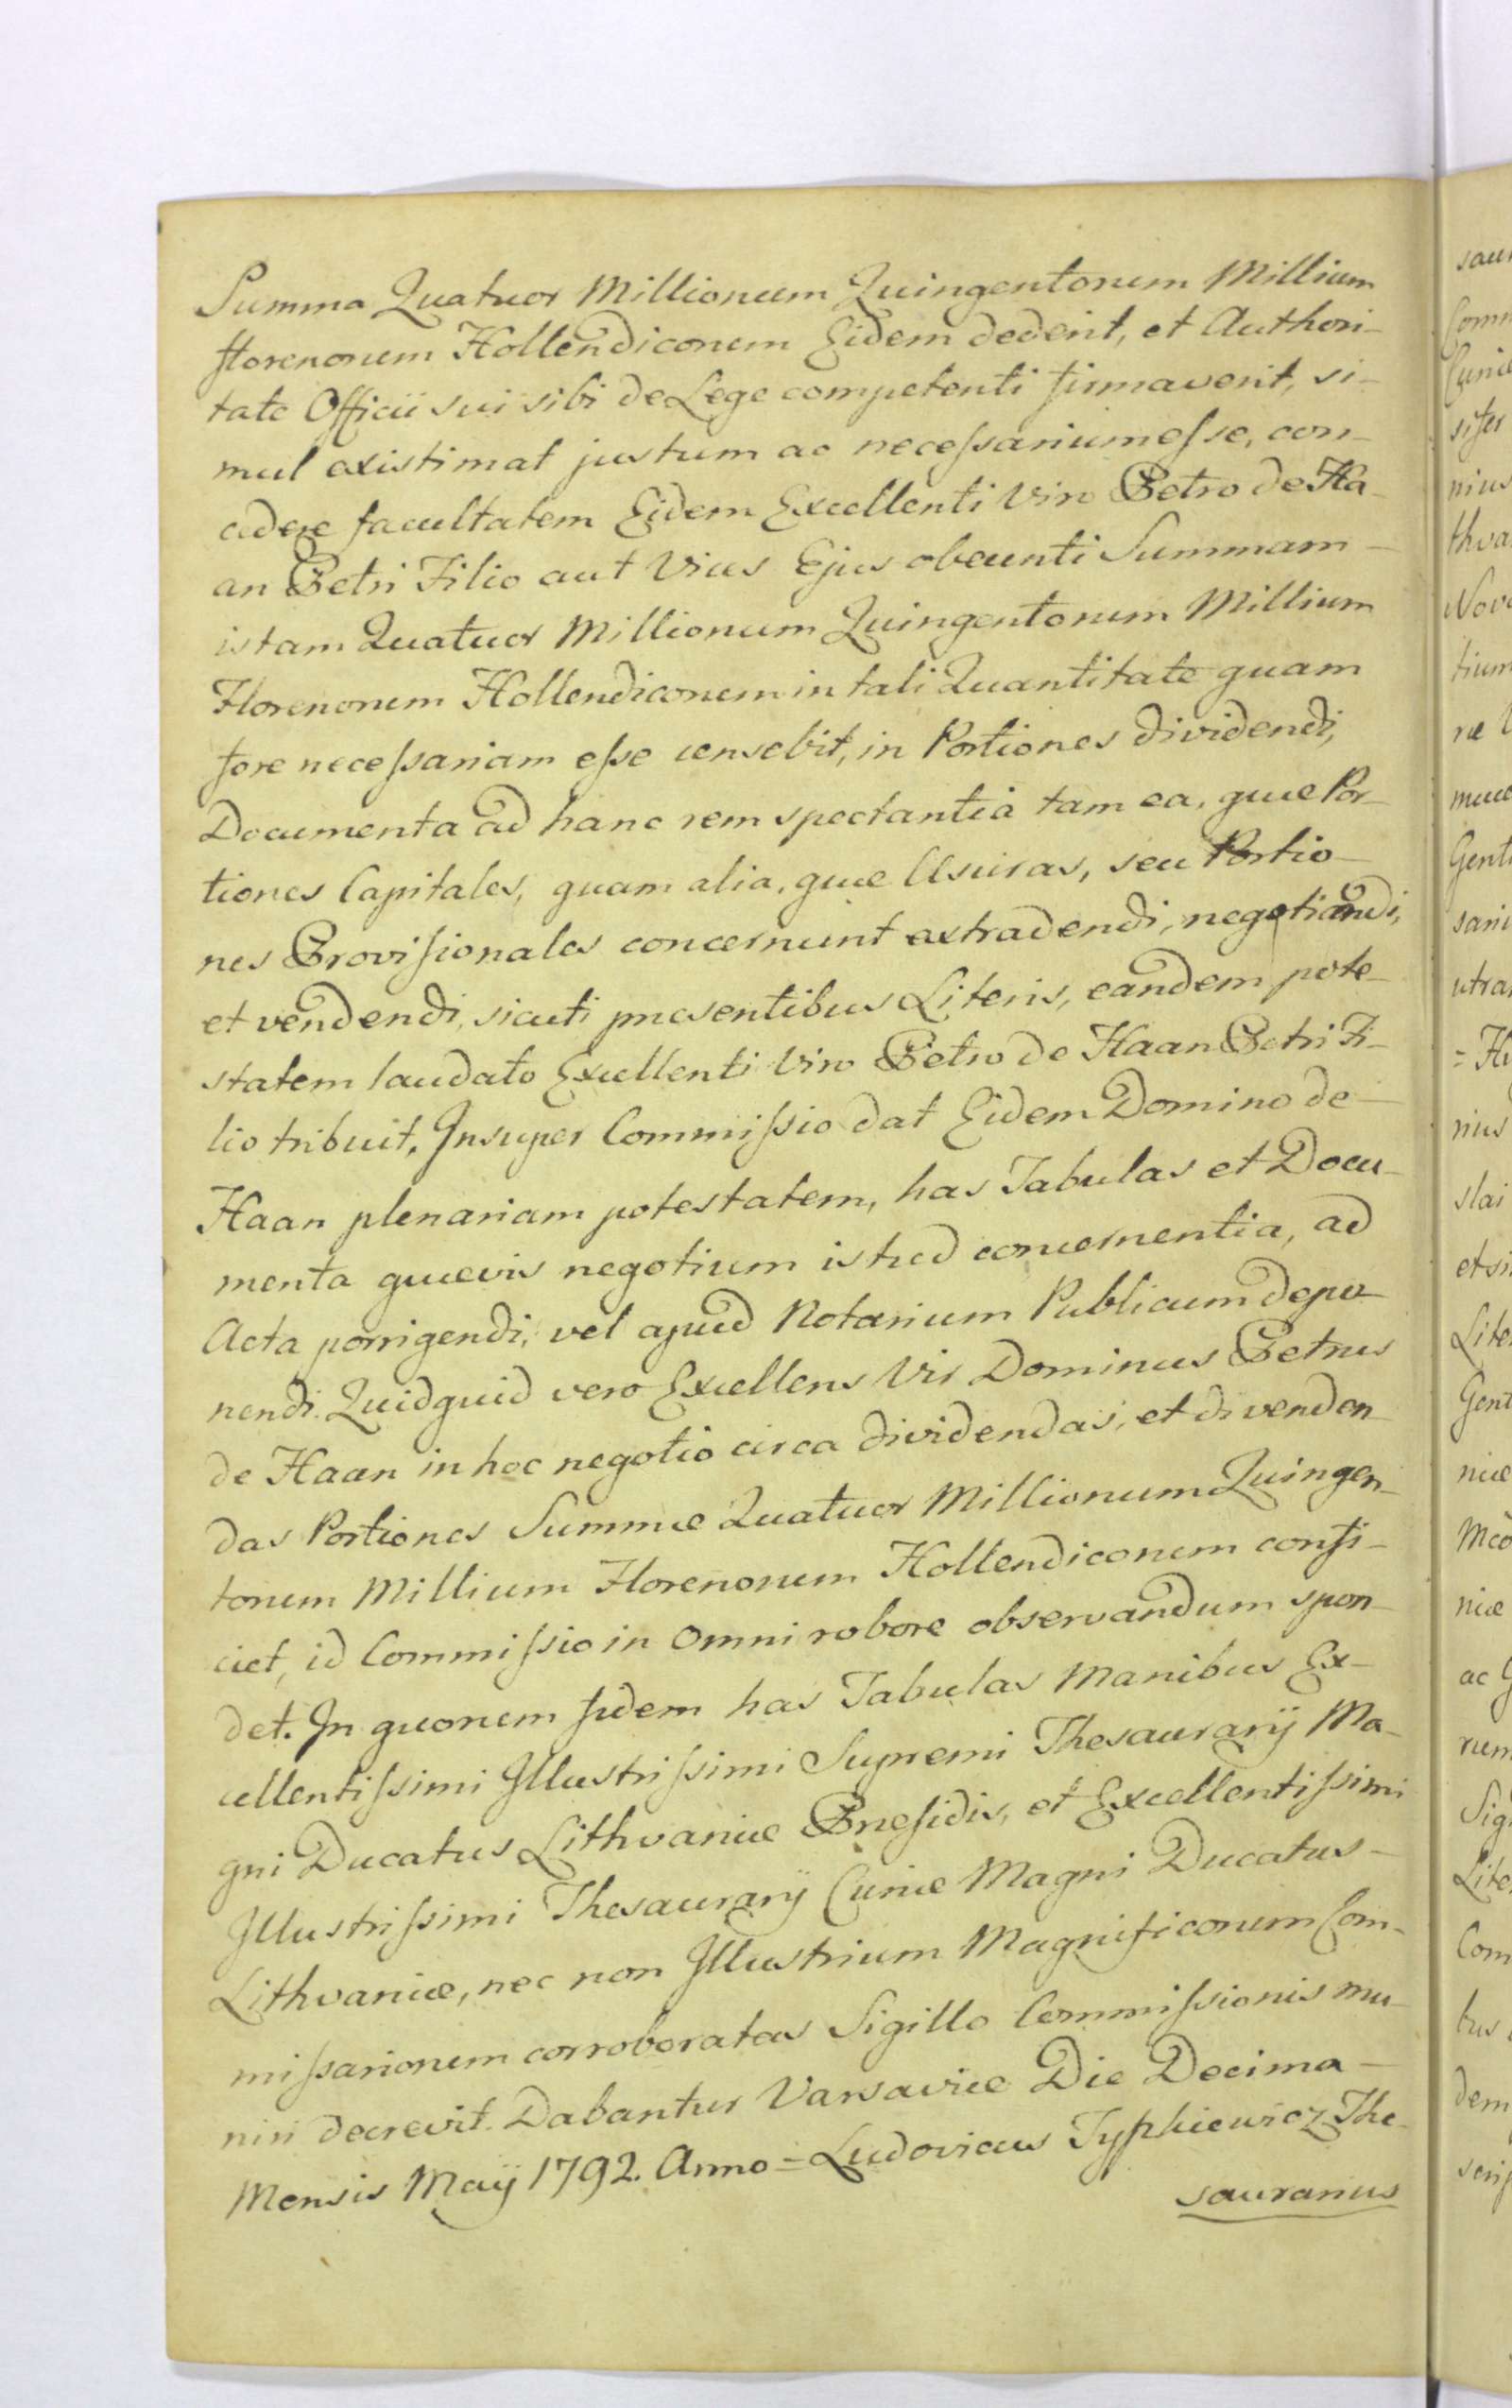 Summa Quatuor Millionum Quingentorum Millium
florenorum Hollendicorum Eidem dederit, et Authori-
tate Officii sui sibi de Lege competenti firmaverit, si-
mul existimat justum ac necessarium esse, con-
cedere facultatem Eidem Excellenti Viro Petro de Ha-
an Petri Filio aut Vices Ejus obeunti Summam
istam Quatuor Millionum Quingentorum Millium
Florenorum Hollendicorum in tali Quantitate quam
fore necessariam esse censebit, in Portiones dividendi,
Documenta ad hanc rem spectantia tam ea, quæ Por-
tiones Capitales, quam alia, quæ Usuras, seu Portio-
nes Provisionales concernunt extradendi, negotiandi,
et vendendi, sicuti præsentibus Literis, eandem pote-
statem laudato Excellenti Viro Petro de Haan Petri Fi-
lio tribuit. Insuper Commissio dat Eidem Domino de
Haan plenariam potestatem, has Tabulas et Docu-
menta quævis negotium istud concernentia, ad
Acta porrigendi, vel apud Notarium Publicum depo-
nendi. Quidquid vero Excellens Vir Dominus Petrus
de Haan in hoc negotio circa dividendas, et divenden-
das Portiones Summæ Quatuor Millionum Quingen-
torum Millium Florenorum Hollendicorum confi-
ciet, id Commissio in omni robore observandum spon-
det. In quorum fidem has Tabulas Manibus Ex-
cellentissimi Illustrissimi Supremi Thesaurarij Ma-
gni Ducatus Lithvaniæ Præsidis, et Excellentissimi
Illustrissimi Thesaurarij Curiæ Magni Ducatus
Lithvaniæ, nec non Illustrium Magnificorum Com-
missariorum corroboratas Sigillo Commissionis mu-
niri decrevit. Dabantur Varsaviæ Die Decima
Mensis Maij 1792. Anno = Ludovicus Tyszkiewicz The-
saurarius